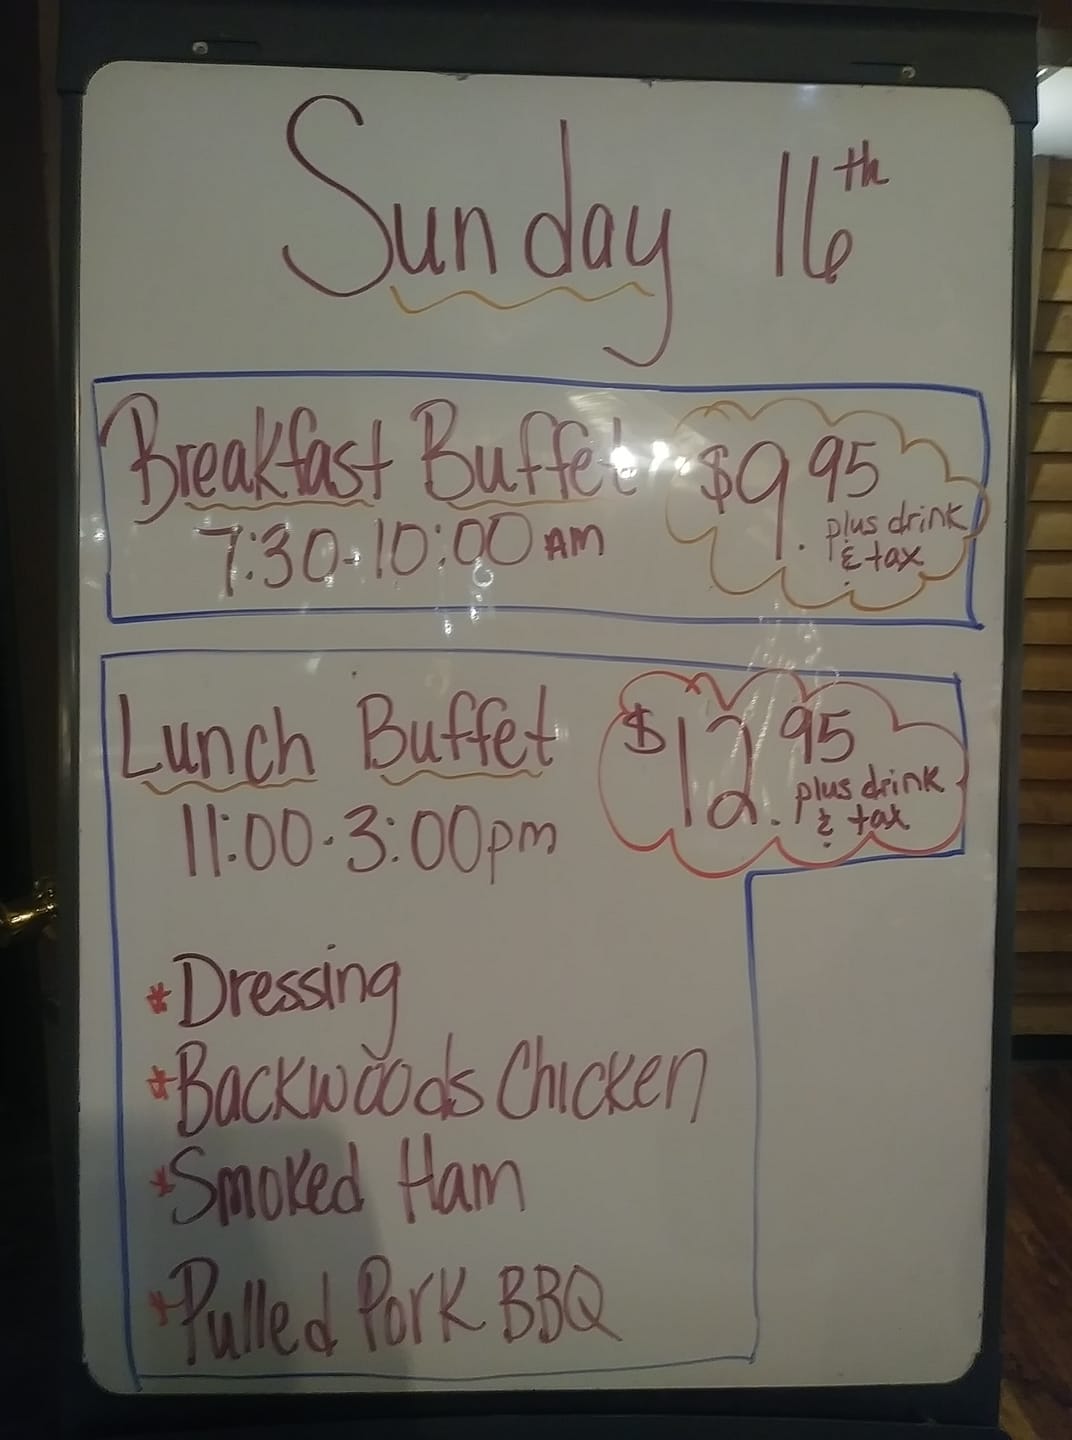 Sunday 16th
Breakfast Buffet $9.95
7:30-10:00 AM plus drink
& tax
Lunch Buffet $12.95
plus drink
& tax
11:00-3:00pm
*Dressing
*Backwoods Chicken
*Smoked Ham
*Pulled Pork BBQ